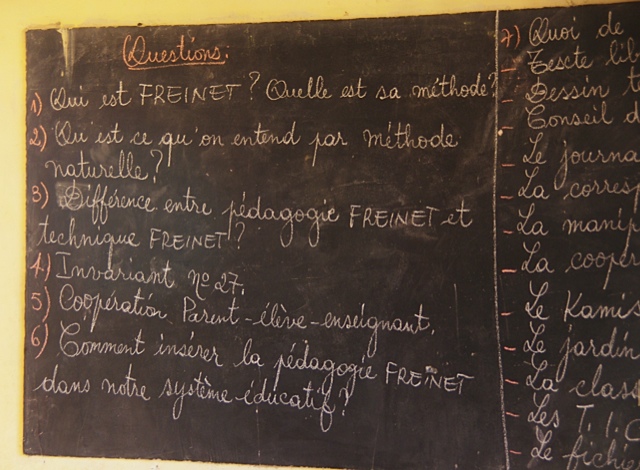 Questions:
1) Qui est FREINET? Quelle est sa méthode?
2) Qu'est ce qu'on entend par méthode
naturelle?
3) Différence entre pédagogie FREINET et
technique FREINET?
4) Invariant nº 27.
5) Coopération Parent-élève-enseignant.
6) Comment insérer la pédagogie FREINET
dans notre système éducatif?
7) Quoi de
- Texte lib
- Dessin
- Conseil d
- Le journa
- La corres
- La manip
- La coopér
- Le Kamis
- Le jardin
- La class
- Les T.I.C
- Le fichi